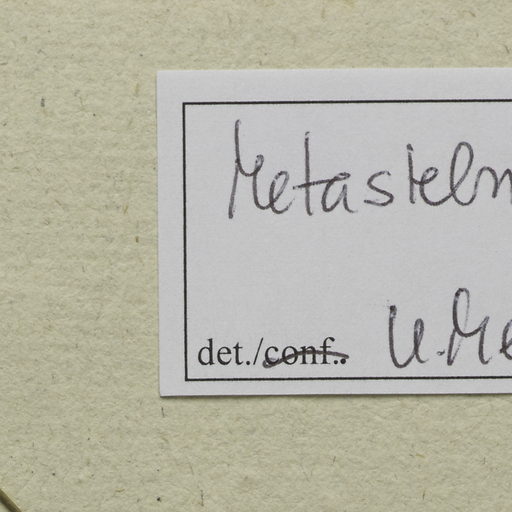 Metasteln
det./conf.. U.Me